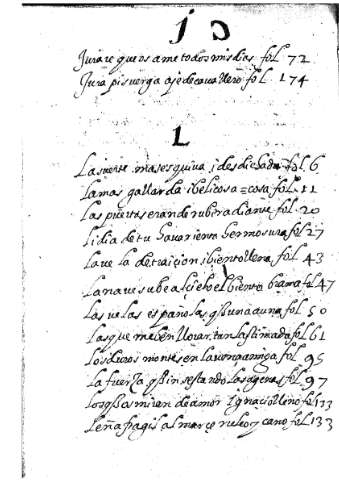 J
Jurare que os ame todos mis dias fol 72
Jura pisuerga a fe de cavallero fol. 174
L
La suerte mas esquiva i desdichada fol. 6
La mas gallarda i belicosa cosa fol. 11
Las puertas eran de rubi radiante fol. 20
Lidia de tu avarienta hermosura fol 27
La vela de traiçion i bien fol. 43
La nave sube al çielo el biento brama fol 47
Las velas españolas una a una fol 50
Las que me ben llorar tan lastimada fol 61
Los divos montes en la fol. 95
La fuerza infestando las ageras fol. 97
Los miren de amor Ignacio lleno fol 133
Leña fragil al março cano fol 133